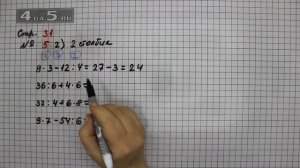 4A5.RU
Стр. 31
№ 5 2) 2 столбик
9 · 3 - 12 : 4 = 27 - 3 = 24
36 : 6 + 4 · 6 =
32 : 4 + 6 · 8 =
9 · 7 - 54 : 6 =